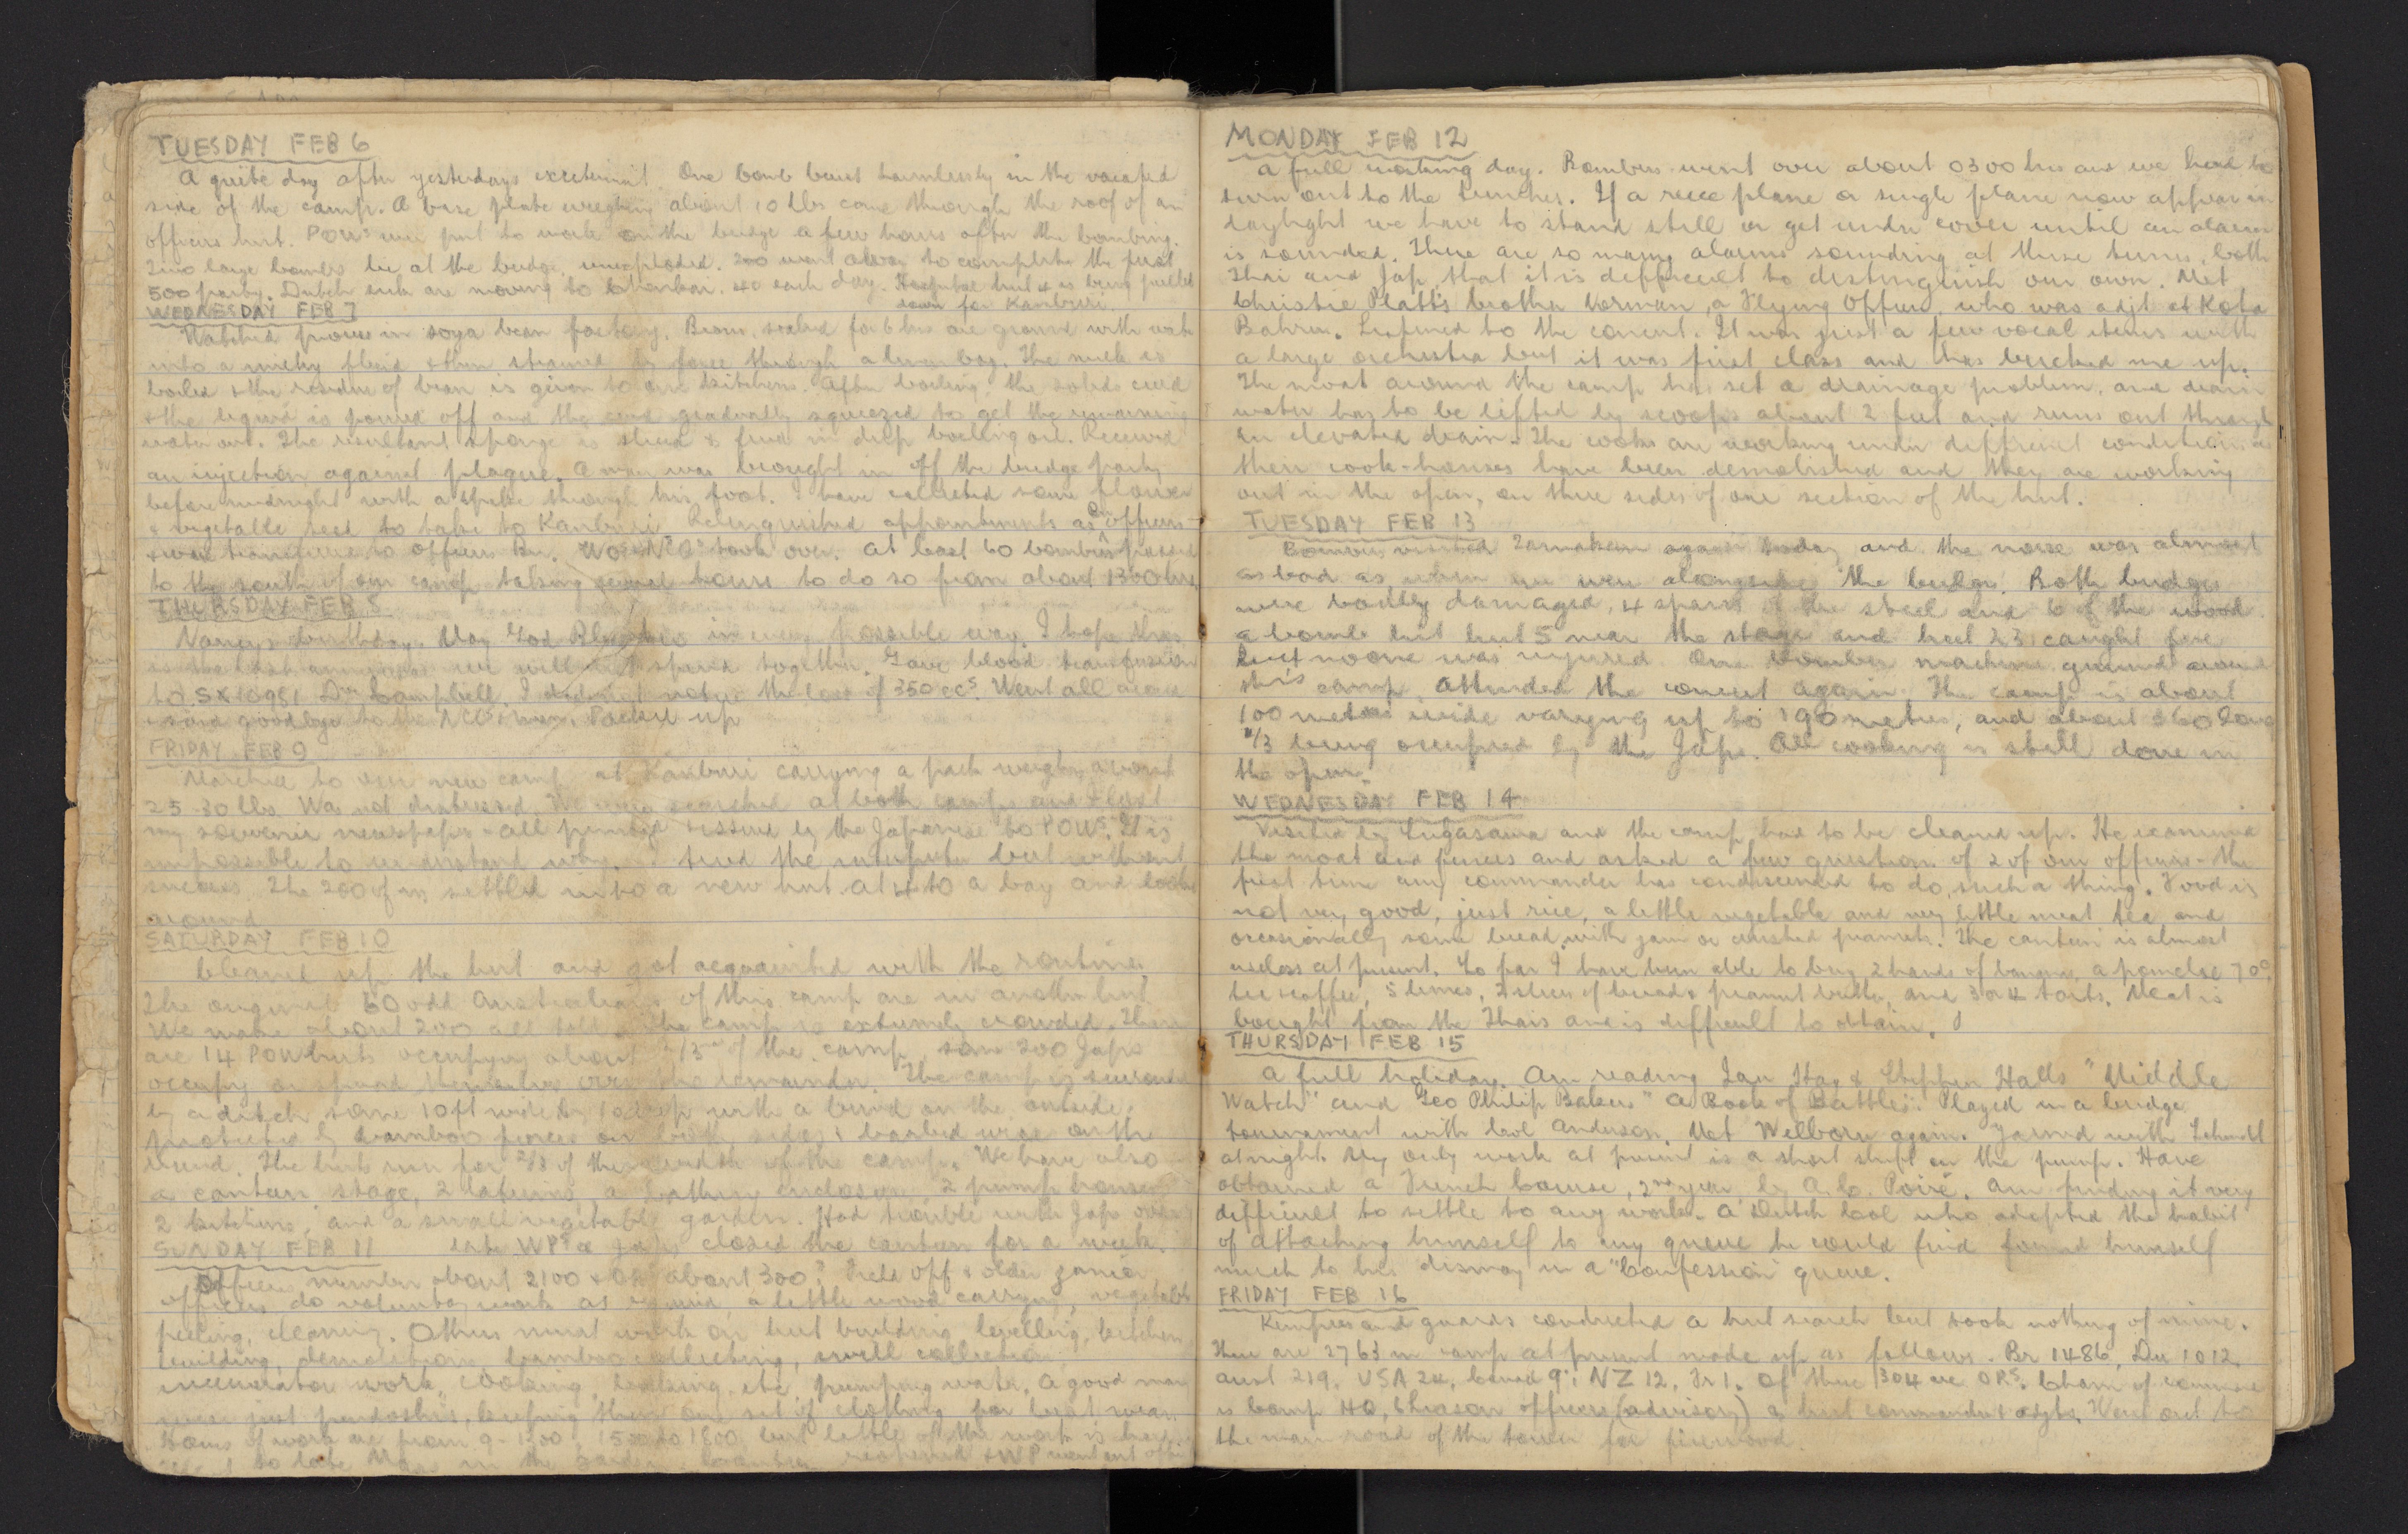 TUESDAY FEB 6
A quite day after yesterdays excitement. One bomb burst harmlessly in the vacated
side of the camp. A base plate weighing about 10 lbs came through the roof of an
officers hut. POWs were put to work on the bridge a few hours after the bombing.
Two large bombs lie at the bridge unexploded. 200 went away to complete the first
500 party. Dutch sick are moving to Chonburi. 40 each day. Hospital hut 4 is being pulled
down for Kanburi.
WEDNESDAY FEB 7
Watched process in soya bean factory. Beans, soaked for 6 hrs are ground with water
into a milky fluid & then strained by force through a linen bag. The milk is
boiled & the residue of bean is given to our kitchens. After boiling the solids curd
& the liquid is poured off and the curd gradually squeezed to get the remaining
water out. The resultant sponge is sliced & fried in deep boiling oil. Received
an injection against plague. A man was brought in off the bridge party
before midnight with a spike through his foot. I have collected some flower
& vegetable seed to take to Kanburi. Relinquished appointments as Bn officers
& were transferred to officers Bn. WOs & NCOs took over. At least 60 bombers passed
to the south of our camp taking several hours to do so from about 1300 hrs.
THURSDAY FEB 8
Nancy's birthday. May God Bless her in every possible way. I hope this
is the last anniversary we will not spend together. Gave blood transfusion
to SX10981 Dvr Campbell. I did not notice the loss of 350 ccs. Went all around
& said goodbye to the NCOs & men. Packed up
FRIDAY FEB 9
Marched to our new camp at Kanburi carrying a pack weighing around
25-30 lbs. Was not distressed. We were searched at both camps and I lost
my souvenir newspapers - all printed & issued by the Japanese to POWs. It is
impossible to understand why. tried the interpreter but without
success. The 200 of us settled into a new hut at 4 to a bay and looked
around
SATURDAY FEB 10
Cleaned up the hut and got acquainted with the routine.
The original 50 odd Australians of this camp are in another hut.
We make about 200 all told. The camp is extremely crowded. There
are 14 POW huts occupying about 2/3rds of the camp, some 200 Japs
occupy or spread themselves over the remainder. The camp is surrounded
by a ditch some 10ft wide by deep with a bund on the outside,
protected by bamboo fences on both sides & barbed wire on the
bund. The huts run for 2/3 of the width of the camp. We have also
a canteen, stage, 2 latrines, a bathing enclosure, 2 pump houses
2 kitchens, and a small vegetable garden. Had trouble with Japs over
late WPs & Japs closed the canteen for a week.
SUNDAY FEB 11
Officers number about 2100 & ORs about 300? Field Off & older junior
officers do voluntary work as required, a little wood carrying, vegetable
peeling, cleaning. Others must work on hut building, levelling, kitchen
building, demolition, bamboo collecting, swill collection
incinerator work, cooking, etc, pumping water. A good many
wear just fundoshis, keeping their one set of clothing for best wear.
Hours of work are from 9-1300, 1500 to 1800 but little of the work is hard
to late Mass in the garden. reopened & WP went out
MONDAY FEB 12
A full working day. Bombers went over about 0300 hrs and we had to
turn out to the trenches. If a recce plane or single plane now appear in
daylight we have to stand still or get under cover until an alarm
is sounded. There are so many alarms sounding at these times, both
Thai and Jap, that it is difficult to distinguish our own. Met
Christie Platt's brother Norman, a Flying Officer, who was adjt at Kota
Bahru. Listened to the concert. It was just a few vocal items with
a large orchestra but it was first class and has bucked me up.
The moat around the camp has set a drainage problem, and drain
water has to be lifted by scoops about 2 feet and runs out through
an elevated drain. The cooks are working under difficult conditions as
their cook-houses have been demolished and they are working
out in the open, on three sides of one section of the hut.
TUESDAY FEB 13
Bombers visited Tamarkan again today and the noise was almost
as bad as when we were alongside the bridge. Both bridges
were badly damaged, 4 spans of the steel and 6 of the wood.
a bomb hit hut 5 near the stage and hut 23 caught fire
but no one was injured. One bomber machine gunned around
this camp. Attended the concert again. The camp is about
100 metres wide varying up to 190 metres, and about 360 long
1/3 being occupied by the Japs. All cooking is still done in
the open.
WEDNESDAY FEB 14
Visited by Sugasawa and the camp had to be cleaned up. He examined
the moat and fences and asked a few questions of 2 of our officers - the
first time any commander has condescended to do such a thing. Food is
not very good, just rice, a little vegetable and very little meat tea and
occasionally some bread with jam or crushed peanuts. The canteen is almost
useless at present. So far I have been able to buy 2 hands of bananas, a pomelo 70c
tea & coffee, 5 limes, 2 slices of bread & peanut butter, and 3 or 4 tarts. Meat is
bought from the Thais and is difficult to obtain.
THURSDAY FEB 15
A full holiday. Am reading Ian Hay & Stephen Halls "Middle
Watch" and Geo Philip Bakers "A Book of Battles". Played in a bridge
tournament with Col Anderson. Met Welborn again. Yarned with Schundt
at night. My only work at present is a short shift on the pump. Have
obtained a French Course, 2nd year, by A.C. Poiré. Am finding it very
difficult to settle to any work. A Dutch Col who adopted the habit
of attaching himself to any queue he could find found himself
much to his dismay in a "Confession" queue.
FRIDAY FEB 16
Kempies and guards conducted a hut search but took nothing of mine.
There are 2763 in camp at present made up as follows. Br 1486, Du 1012,
Aust 219, USA 24, Canad 9, NZ 12, Fr 1. Of these 304 are ORs. Chain of command
is Camp HQ, Liaison officers (advisory) & hut commanders & adjts. Went out to
the main road of the town for firewood.